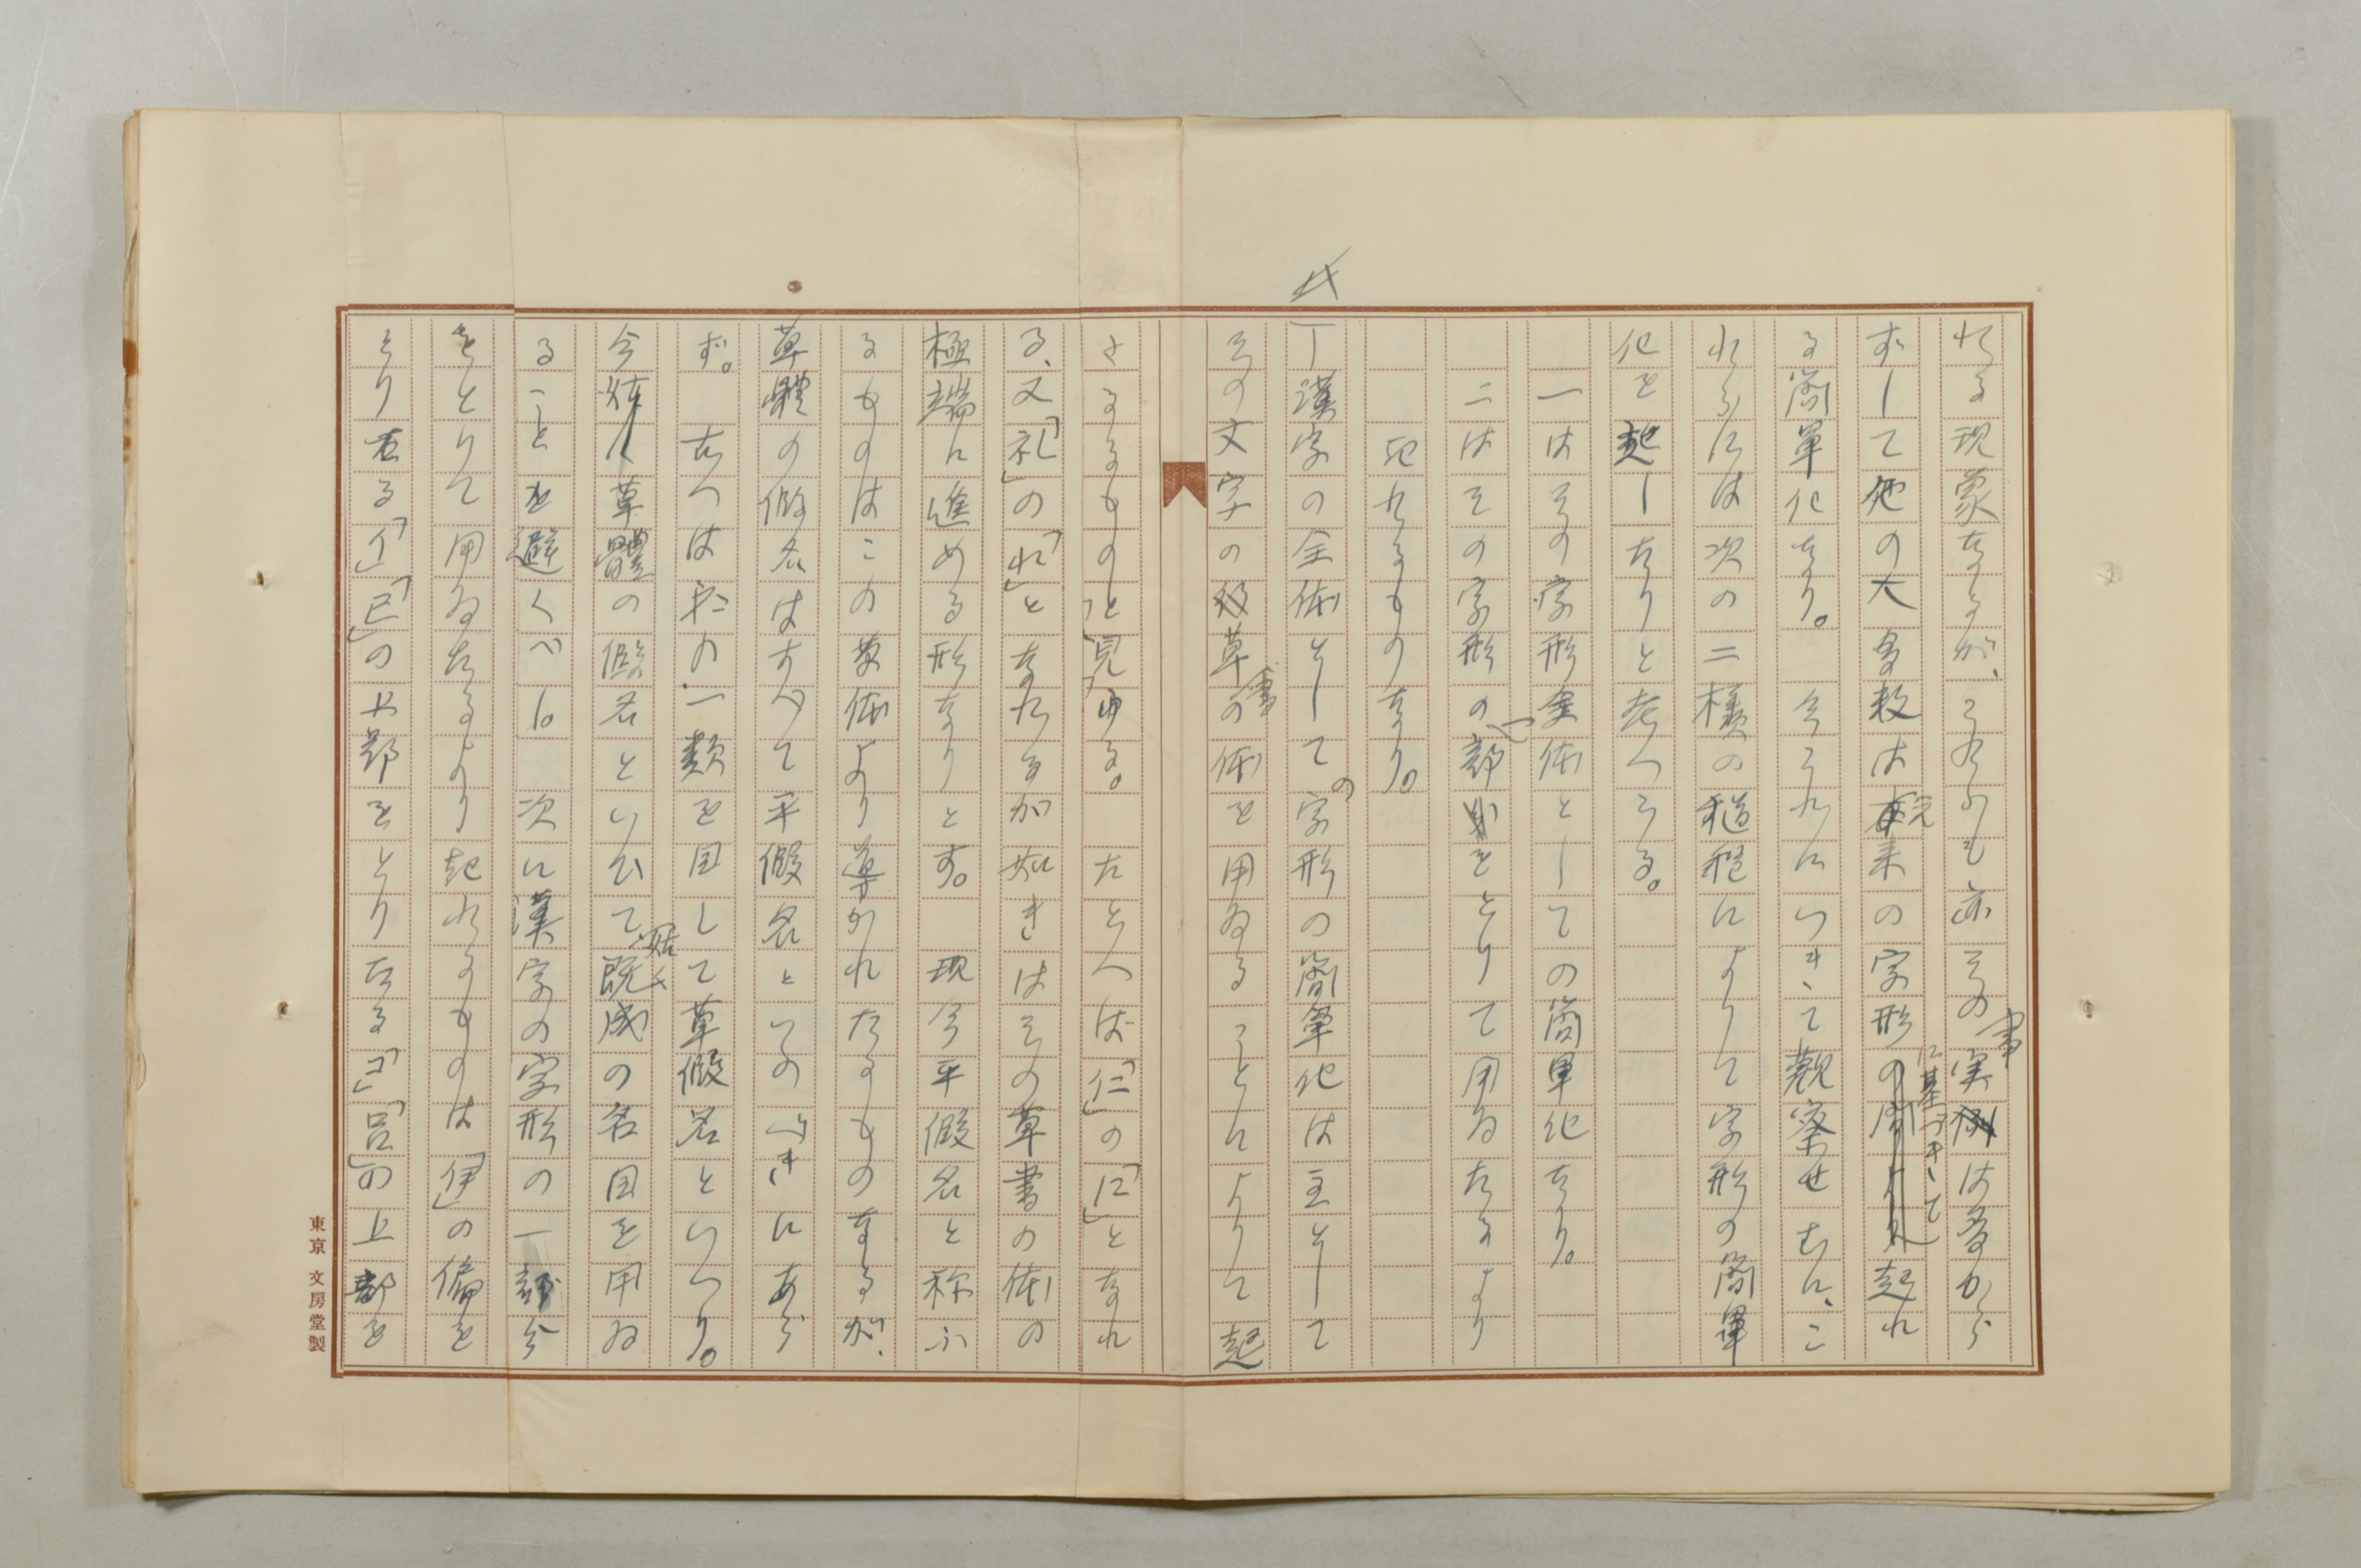 れる現象なるが、これらも亦その事実は多から
ずして他の大多数は元来の字形に基づきて起れ
る簡単化なり。 今これにつきて観察せむに、こ
れらには次の二様の種類によりて字形の簡単
化を起したりと考へらる。
一はその字形全体としての簡単化なり。
二はその字形の一部をとりて用ゐたるより
起れるものなり。
漢字の全体としての字形の簡単化は主として
その文字の草書の体を用ゐることによりて起
さるるものと見ゆる。 たとへば「仁」の「に」となれ
る、又「礼」の「れ」となれるが如きはその草書の体の
極端に進める形なりとす。 現今平假名と称ふ
るものはこの草体より導かれたるものなるが、
草體の假名はすべて平假名といふべきにあら
ず。 古へは、その一類を目して草假名といへり。
今草體の假名といひて既成の名目を用ゐ
ることを避くべし。 次に漢字の字形の一部分
をとりて用ゐたるより起れるものは「伊」の偏を
とりたる「イ」「己」の上部をとりたる「コ」「呂」の上部を
東京 文房堂製